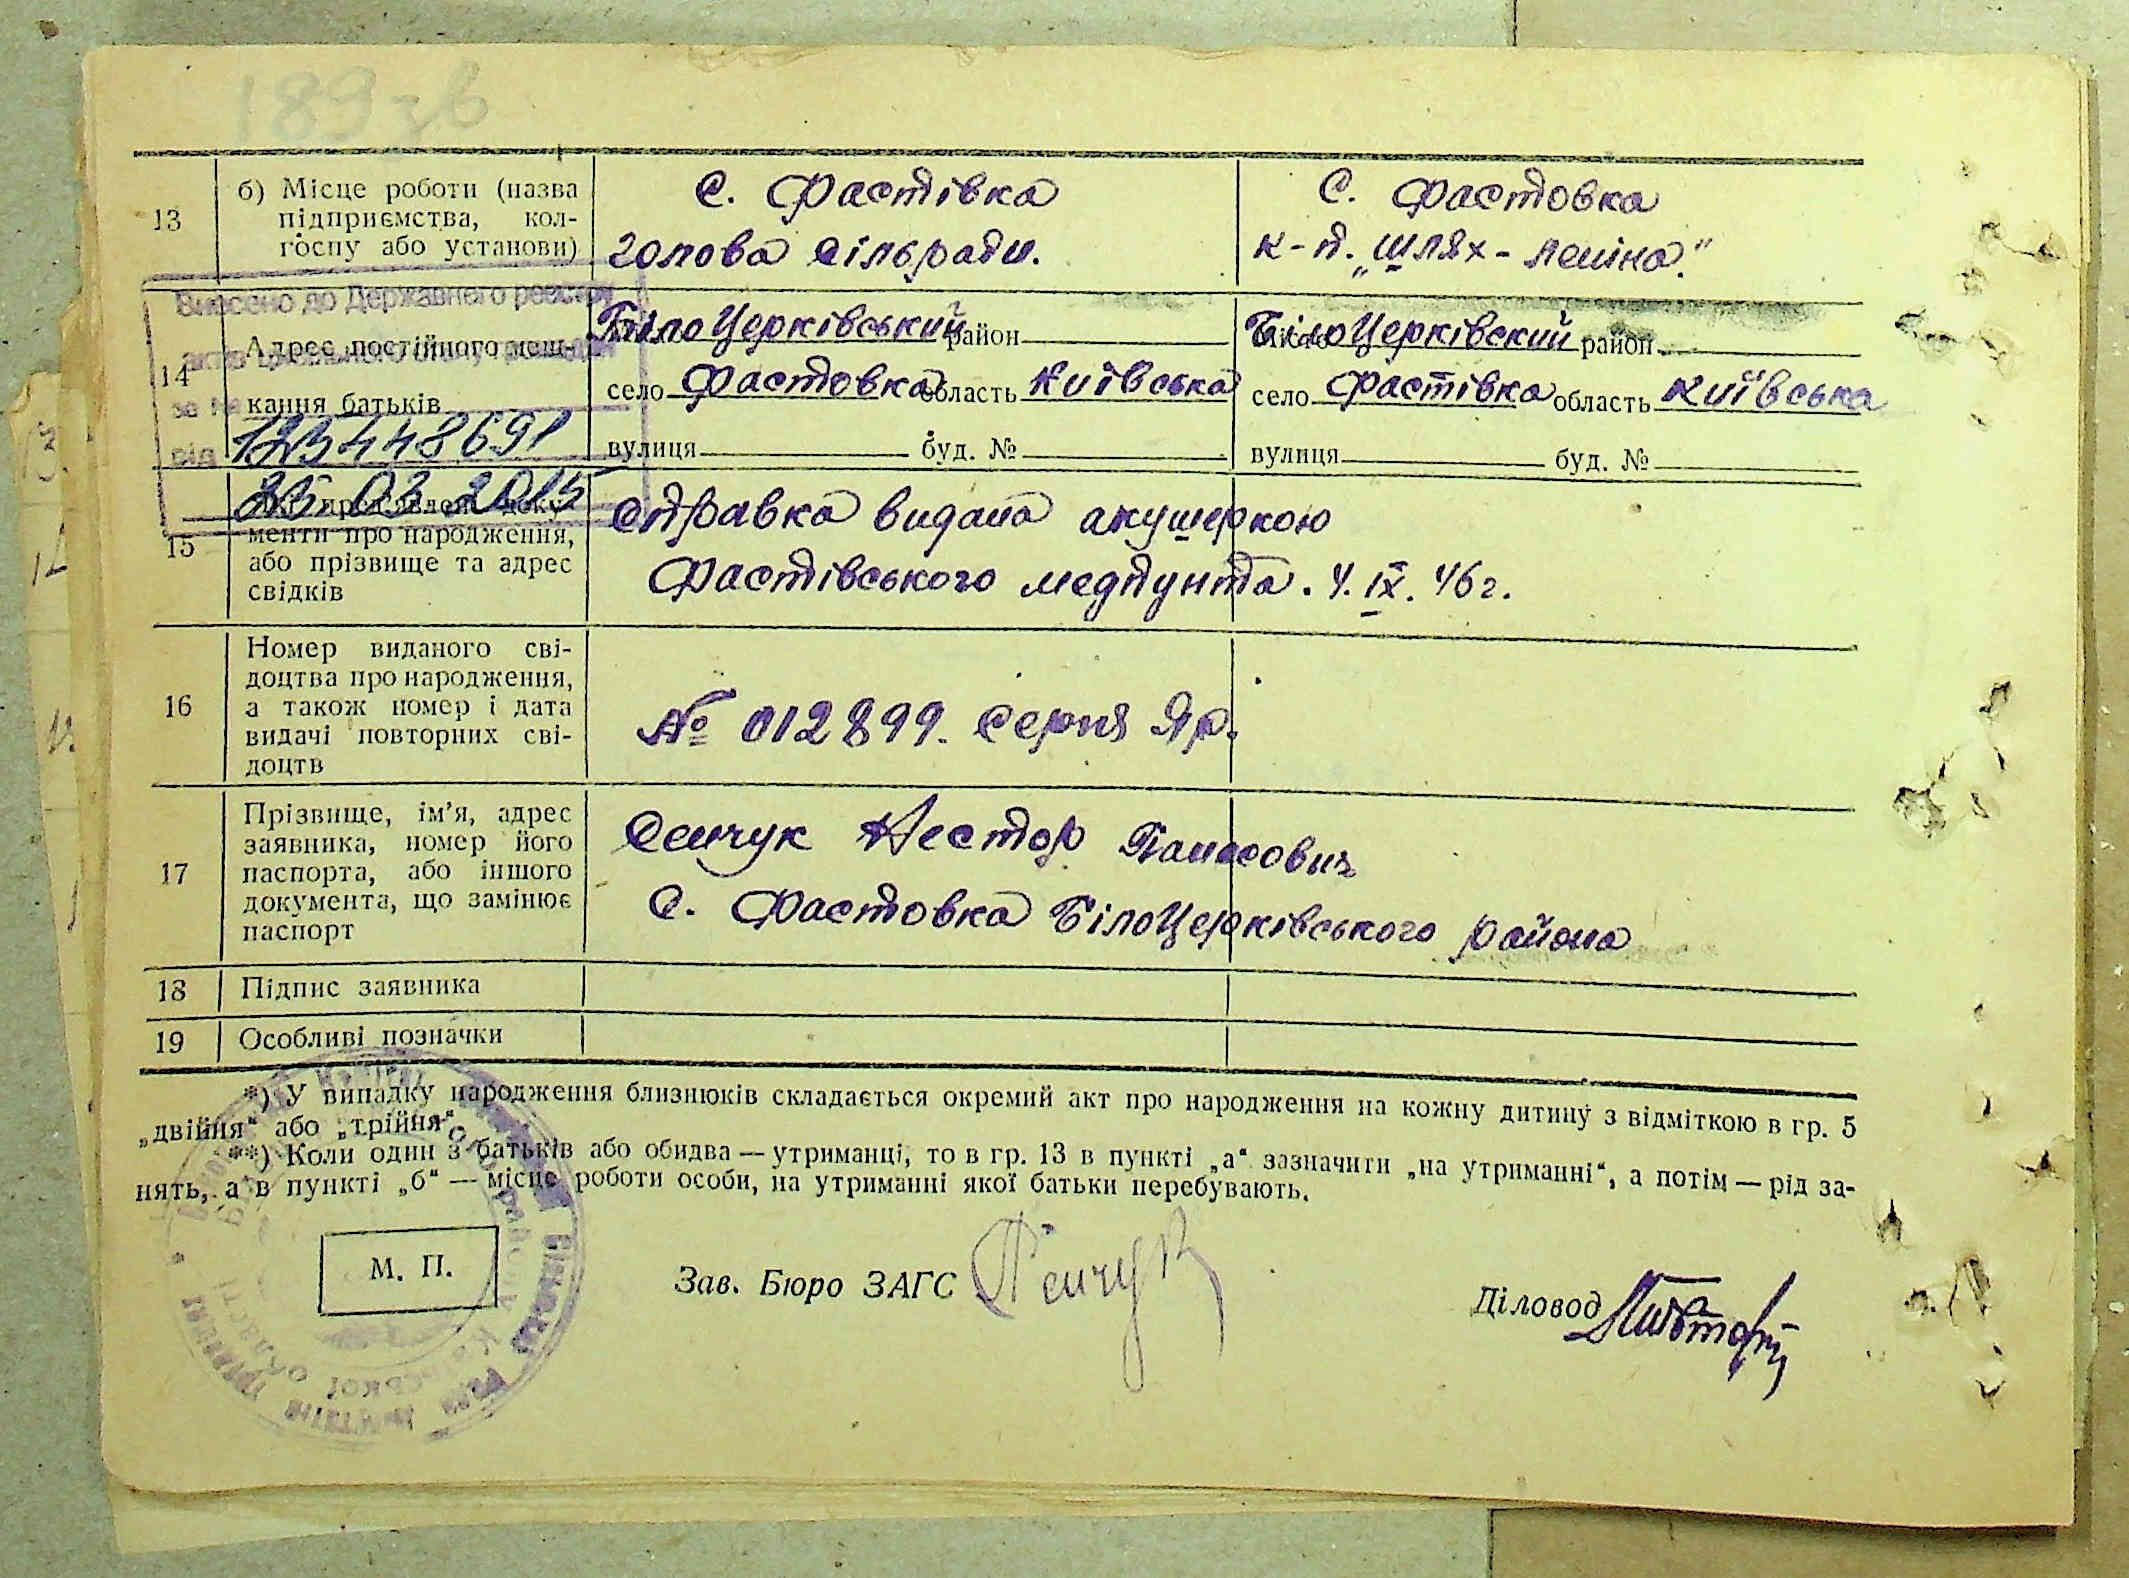 189 зв
13
б) Місце роботи (назва
підприємства, кол-
госпу або установи)
С. Фастівка
голова сільради.
С. Фастовка
к-п. „шлях-Леніна."
Внесено до Державного реєстру
актів цивільного стану громадян
за №
123448691
від
25 03 2015
14
Адрес постійного меш-
кання батьків
БілоЦерківський район
село Фастовка область Київська
вулиця буд. №
БілоЦерківский район
село Фастівка область Київська
вулиця буд. №
15
менти про народження,
або прізвище та адрес
свідків
Справка видана акушеркою
Фастівського медпункта. 4. IX. 46 г.
16
Номер виданого сві-
доцтва про народження,
а також номер і дата
видачі повторних сві-
доцтв
№ 012899. серия Яр.
17
Прізвище, ім’я, адрес
заявника, номер його
паспорта, або іншого
документа, що замінює
паспорт
Сенчук Нестор Панасович
С. Фастовка БілоЦерківського района
18
Підпис заявника
19
Особливі позначки
*) У випадку народження близнюків складається окремий акт про народження на кожну дитину з відміткою в гр. 5
„двійня“ або „трійня“.
**) Коли один з батьків або обидва — утриманці, то в гр. 13 в пункті „а“ зазначити „на утриманні“, а потім — рід за-
нять, а в пункті „б“ — місце роботи особи, на утриманні якої батьки перебувають.
М. П.
Зав. Бюро ЗАГС
Діловод